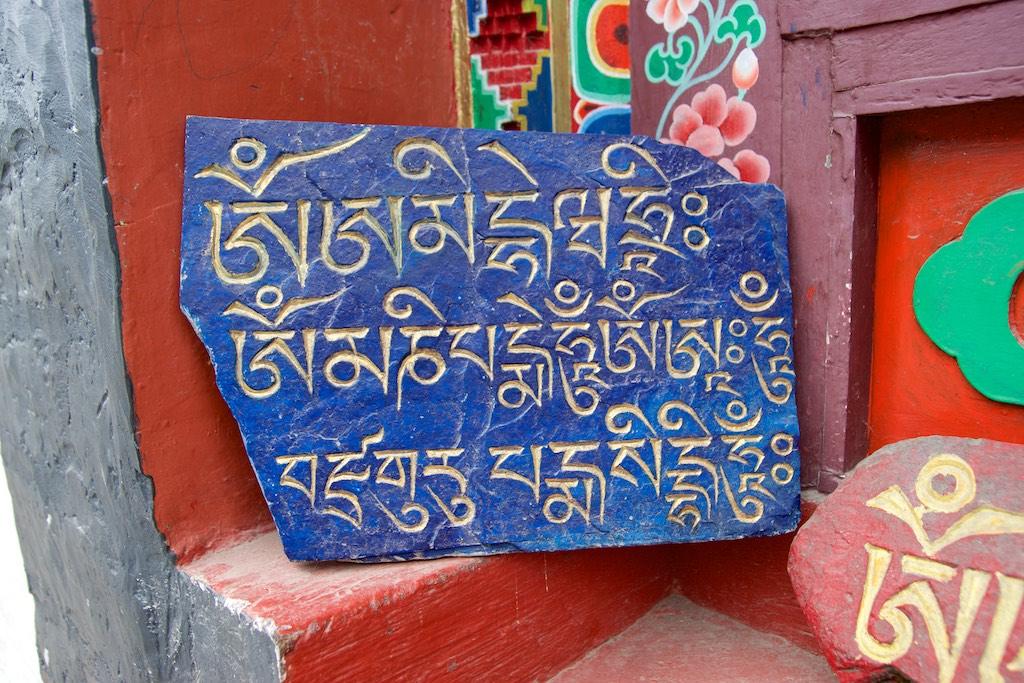 ཨོཾཨམིདྷེཝཧྲིཿ
ཨོཾམཎིཔདྨེཧཱུྃཨོཾཨཱཿཧཱུྃ
བཛྲགུརུ པདྨསིདྡྷིཧཱུྃཿ
ཨོཾ